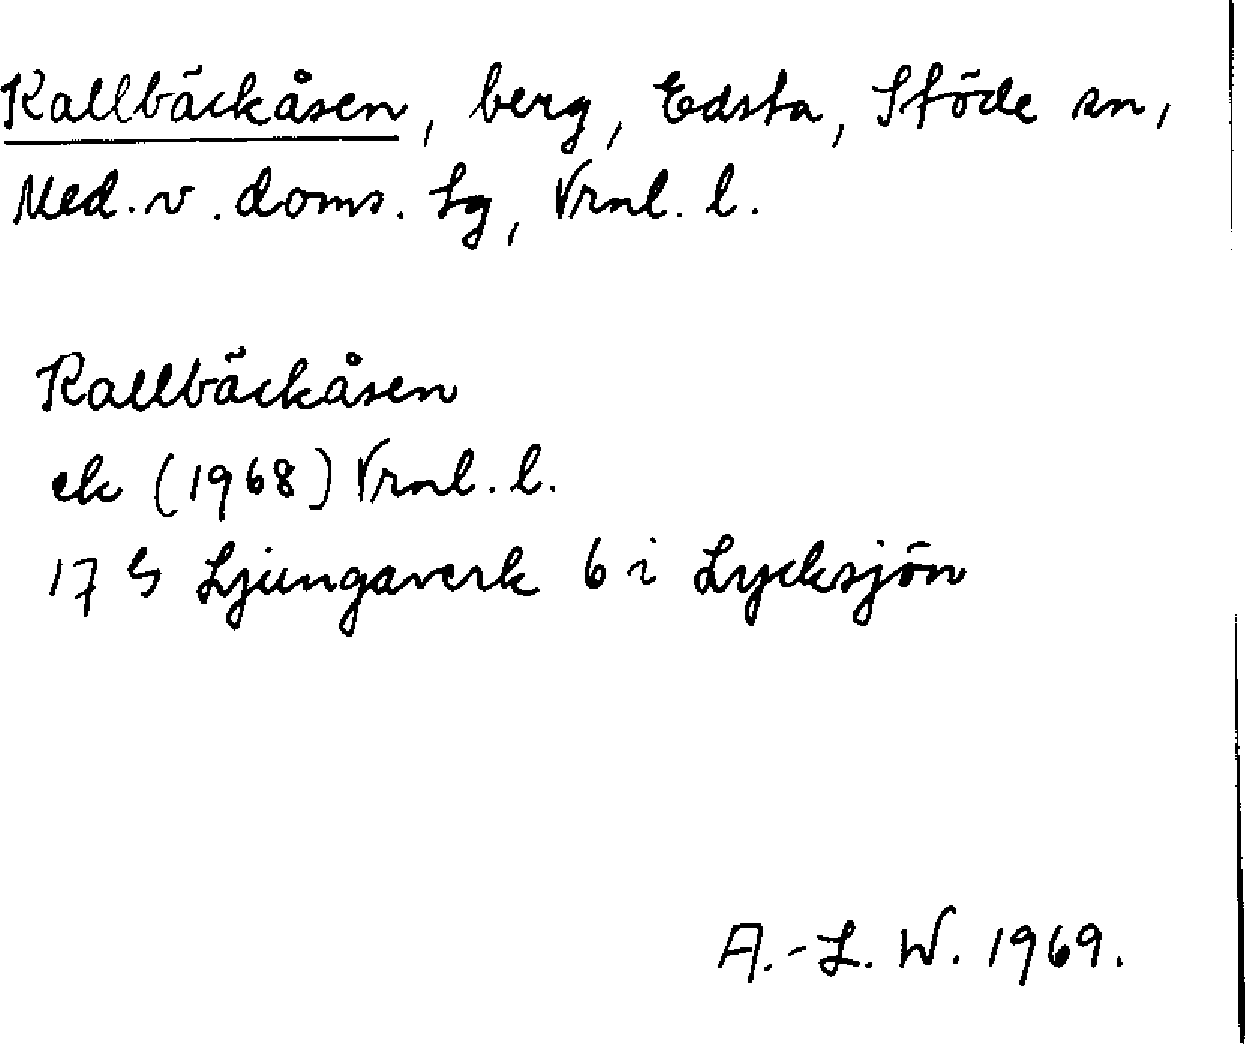 Kallbäckåsen, berg, Edsta, Stöde sn,
Med. v. doms. tg, Vrnl. l.
Kallbäckåsen
ek (1968) Vrnl. l.
17 G Ljungaverk 6 i Lycksjön
A.-L. W. 1969.